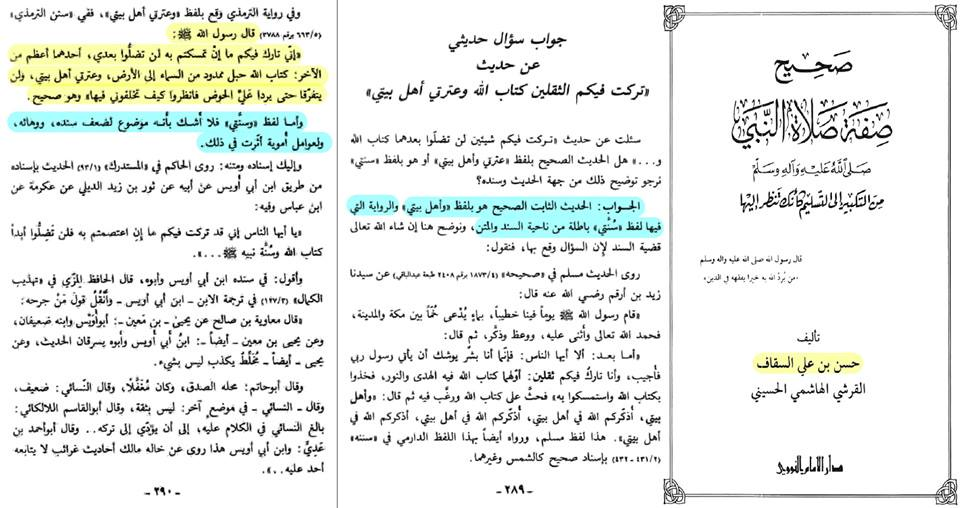 صحيح
صفة صلاة النبي
صلى الله عليه وآله وسلم
من التكبير إلى التسليم كأنك تنظر إليها
قال رسول الله صلى الله عليه وآله وسلم
«من يُرد الله به خيرا يفقهه في الدين»
تأليف
حسن بن علي السقاف
القرشي الهاشمي الحسيني
دار الإمام النووي
جواب سؤال حديثي
عن حديث
«تركت فيكم الثقلين كتاب الله وعترتي أهل بيتي»
سئلت عن حديث «تركت فيكم شيئين لن تضلّوا بعدهما كتاب الله
و...» هل الحديث الصحيح بلفظ «عترتي وأهل بيتي» أو هو بلفظ «سنتي»
نرجو توضيح ذلك من جهة الحديث وسنده؟
الجواب: الحديث الثابت الصحيح هو بلفظ «وأهل بيتي» والرواية التي
فيها لفظ «سُنَّتي» باطلة من ناحية السند والمتن، ونوضح هنا إن شاء الله تعالى
قضية السند لإن السؤال وقع بها، فنقول:
روى الحديث مسلم في «صحيحه» (١٨٧٣/٤ برقم ٢٤٠٨ طبعة عبدالباقي) عن سيدنا
زيد بن أرقم رضي الله عنه قال:
«قام رسول الله ﷺ يوماً فينا خطيباً، بماءٍ يُدْعى خُمّاً بين مكة والمدينة،
فحمد الله تعالى وأثنى عليه، ووعظ وذكَّر، ثم قال:
«أما بعد: ألا أيها الناس: فإنّما أنا بشرٌ يوشك أن يأتي رسول ربي
فأجيب، وأنا تاركٌ فيكم ثقلين: أولهما كتاب الله فيه الهدى والنور، فخذوا
بكتاب الله واستمسكوا به» فحثَّ على كتاب الله ورغَّب فيه ثم قال: «وأهل
بيتي، أذكركم الله في أهل بيتي، أذكركم الله في أهل بيتي، أذكركم الله في
أهل بيتي». هذا لفظ مسلم، ورواه أيضاً بهذا اللفظ الدارمي في «سننه»
(٤٣١/٢ - ٤٣٢) بإسناد صحيح كالشمس وغيرهما.
- ٢٨٩ -
وفي رواية الترمذي وقع بلفظ «وعترتي أهل بيتي»، ففي «سنن الترمذي»
(٦٦٣/٥ برقم ٣٧٨٨) قال رسول الله ﷺ:
«إنّي تارك فيكم ما إنْ تمسكتم به لن تضلُّوا بعدي، أحدهما أعظم من
الآخر: كتاب الله حبل ممدود من السماء إلى الأرض، وعترتي أهل بيتي، ولن
يتفرقا حتى يردا عَليَّ الحوض فانظروا كيف تخلفوني فيها» وهو صحيح.
وأما لفظ «وسنَّتي» فلا أشك بأنه موضوع لضعف سنده، ووهائه،
ولعوامل أموية أثّرت في ذلك.
وإليك إسناده ومتنه: روى الحاكم في «المستدرك» (٩٣/١) الحديث بإسناده
من طريق ابن أبي أويس عن أبيه عن ثور بن زيد الديلي عن عكرمة عن
ابن عباس وفيه:
«يا أيها الناس إني قد تركت فيكم ما إن اعتصمتم به فلن تَضِلُّوا أبداً
كتاب الله وسُنّة نبيه ﷺ ...».
وأقول: في سنده ابن أبي أويس وأبوه، قال الحافظ المزّي في «تهذيب
الكمال» (١٢٧/٣) في ترجمة الابن ـ ابن أبي أويس ـ وأنقُلُ قولَ مَنْ جرحه:
«قال معاوية بن صالح عن يحيىٰ ـ بن معين ـ: أبوأويس وابنه ضعيفان،
وعن يحيىٰ بن معين ـ أيضاً ـ: ابنُ أبي أويس وأبوه يسرقان الحديث، وعن
يحيىٰ ـ أيضاً ـ مُخَلِّطٌ يكذب ليس بشيء.
وقال أبوحاتم: محله الصدق، وكان مُغفَّلًا، وقال النَّسائي: ضعيف،
وقال ـ النسائي ـ في موضعٍ آخر: ليس بثقة، وقال أبوالقاسم اللالكائي:
بالغ النسائي في الكلام عليه، إلى أن يؤدِّي إلى تركه.. وقال أبوأحمد بن
عَدِيّ: وابن أبي أويس هذا روى عن خاله مالك أحاديث غرائب لا يتابعه
أحد عليه..».
- ٢٩٠ -